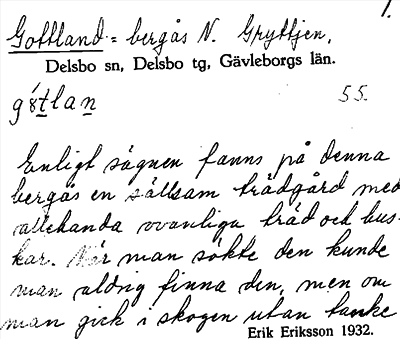 1.
Gottland = bergås N. Gryttjen,
Delsbo sn, Delsbo tg, Gävleborgs län.
55.
Enligt sägnen fanns på denna
bergås en sällsam trädgård med
allehanda ovanliga träd och bus-
kar. När man sökte den kunde
man aldrig finna den, men om
man gick i skogen utan tanke
Erik Eriksson 1932.